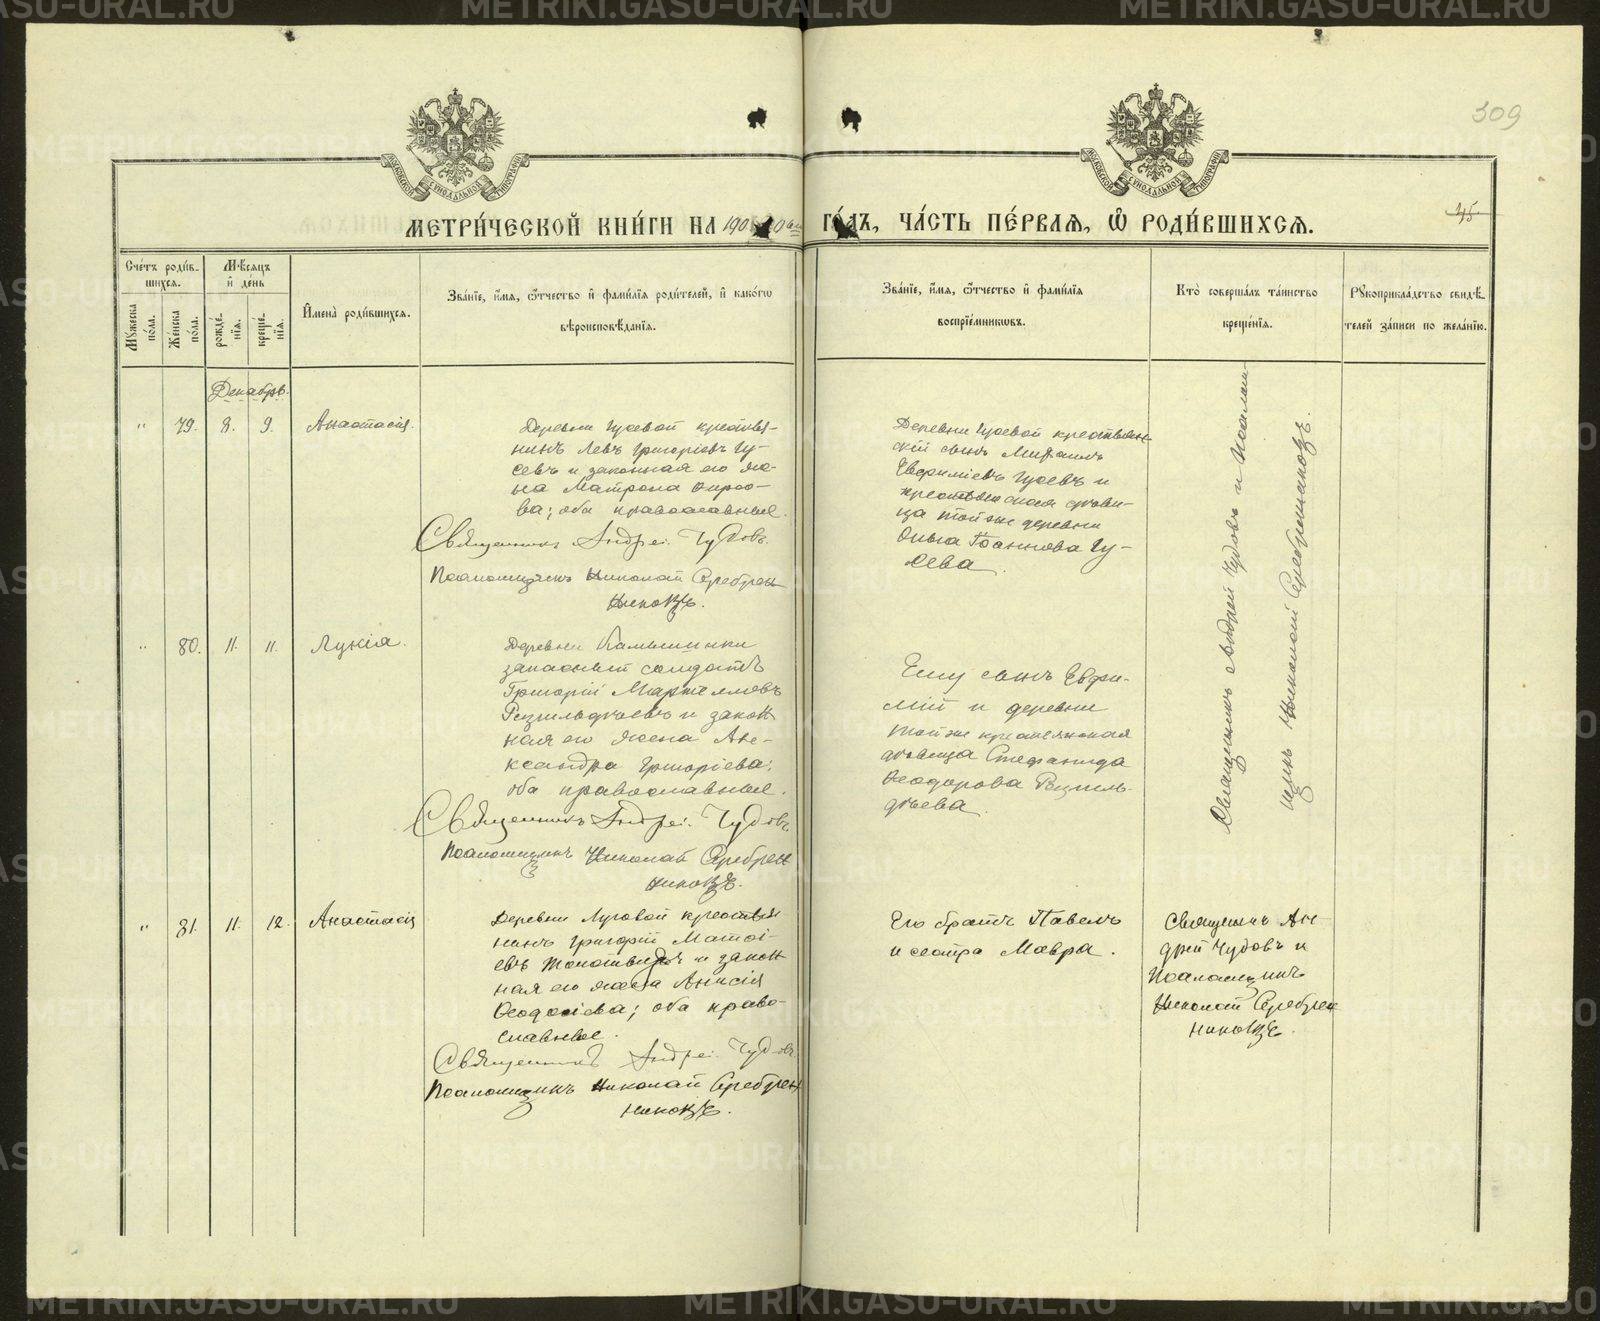 309
МОСКОВСКОЙ СѴНОДАЛЬНОЙ ТИПОГРАФІИ
МОСКОВСКОЙ СѴНОДАЛЬНОЙ ТИПОГРАФІИ
МЕТРИ́ЧЕСКОЙ КНИ́ГИ НА 190
ГО́ДЪ, ЧА́СТЬ ПЕ́РВАЯ, Ѽ РОДИ́ВШИХСЯ.
45
Сче́тъ роди́в-
шихся.
Мꙋ́жеска по́ла.
Же́нска по́ла.
Мѣ́сяцъ
и҆ де́нь
рожде́-
нїя.
креще́-
нїя.
И҆мена̀ роди́вшихся.
Зва́нїе, и҆́мя, ѻ҆́тчество и҆ фами́лїя роди́телей, и҆ како́гѡ
вѣроисповѣ́данїя.
Зва́нїе, и҆́мя, ѻ҆́тчество и҆ фами́лїя
воспрїе́мникѡвъ.
Кто̀ соверша́лъ та́инство
креще́нїя.
Рꙋкоприкла́дство свидѣ́-
телей за́писи по жела́нїю.
Декабрь.
" 79. 8. 9. Анастасія.
Деревни Гусевой крестья-
нинъ Левъ Григоріевъ Гу-
севъ и законная его же-
на Матрона
ва; оба православные.
Священникъ Андрей Чудовъ.
Псаломщикъ Николай Серебрен
никовъ.
Деревни Гусевой крестьян-
скій сынъ Михаилъ
Евфиміевъ Гусевъ и
крестьянская дѣви-
ца той же деревни
Ольга Іоаннова Гу-
сева
Священникъ Андрей Чудовъ и Псалом-
щикъ Николай Серебренниковъ.
" 80. 11. 11. Лукія.
Деревни Камышинки
запасный солдатъ
Григорій
и закон
ная его жена Але-
ксандра Григоріева;
оба православные.
Священникъ Андрей Чудовъ
Псаломщикъ Николай Серебрен
никовъ.
Ешу сынъ Евфи-
мій и деревни
той же крестьянская
дѣвица Стефанида
Ѳеодорова Резиль-
дѣева.
" 81. 11. 12. Анастасія
Деревни Луговой крестья
нинъ Григорій Матѳі-
евъ и закон
ная его жена Анисія
Ѳеодосіева; оба право-
славные.
Священникъ Андрей Чудовъ
Псаломщикъ Николай Серебрен
никовъ.
Его братъ Павелъ
и сестра Мавра.
Священникъ Ан-
дрей Чудовъ и
Псаломщикъ
Николай Серебрен
никовъ.
METRIKI.GASO-URAL.RU